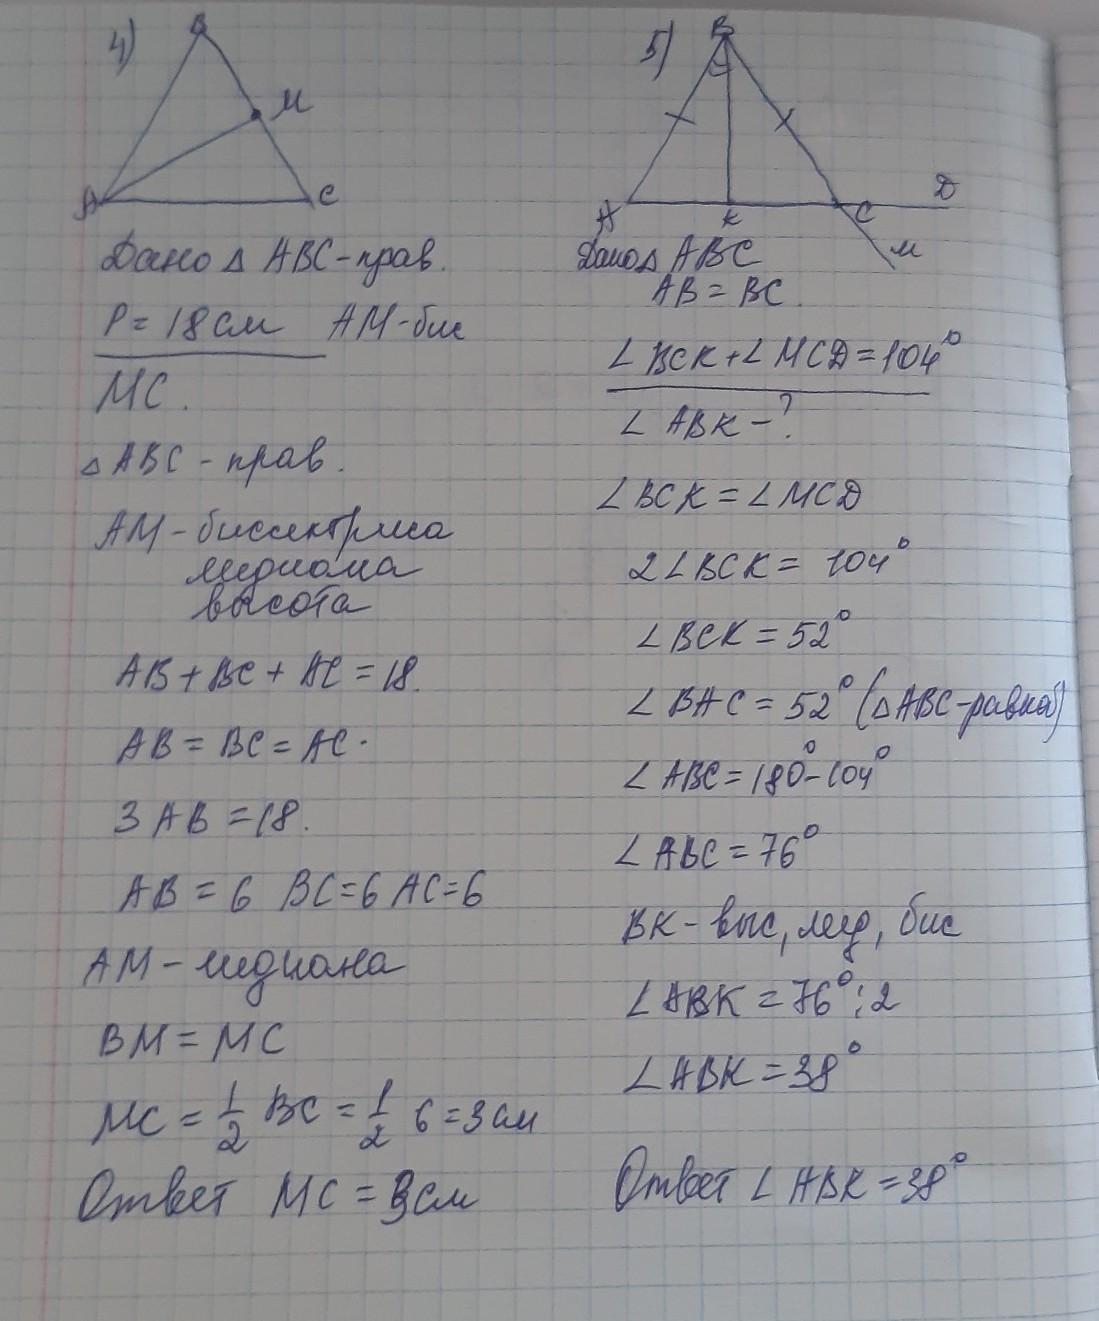 4)
В
М
А
С
Дано △ ABC - прав.
P = 18 см AM - бис
MC.
△ ABC - прав.
AM - биссектриса
медиана
высота
AB + BC + AC = 18.
AB = BC = AC.
3 AB = 18.
AB = 6 BC = 6 AC = 6
AM - медиана
BM = MC
MC = 1/2 BC = 1/2 6 = 3 см
Ответ MC = 3 см
5)
В
А
К
С
D
М
Дано △ ABC
AB = BC.
∠ BCK + ∠ MCD = 104°
∠ ABK - ?
∠ BCK = ∠ MCD
2∠ BCK = 104°
∠ BCK = 52°
∠ BAC = 52° (△ ABC - равноб)
∠ ABC = 180° - 104°
∠ ABC = 76°
BK - выс, мед, бис
∠ ABK = 76° : 2
∠ ABK = 38°
Ответ ∠ ABK = 38°